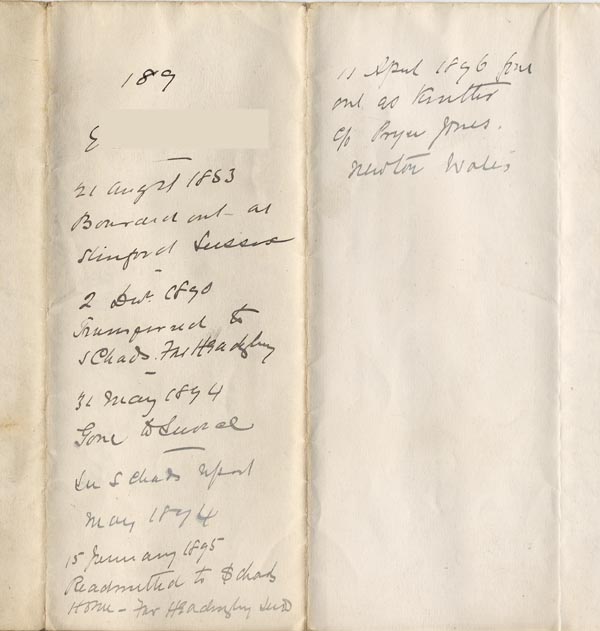 189
E
21 August 1883
Boarded out at
Slinford Sussex
2 Dec. 1890
Transferred to
S Chads. Far Headingley
31 May 1894
Gone to
See S Chads report
May 1894
15 January 1895
Readmitted to S Chads
Home - Far Headingley Leeds
11 April 1896 gone
out as Knitter
c/o Pryce Jones.
Newton Wales